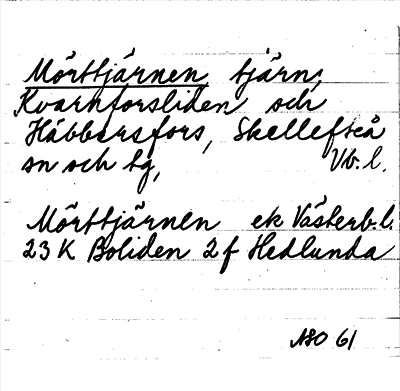 Mörttjärnen tjärn,
Kvarnforsliden och
Häbbersfors, Skellefteå
sn och tg, Vb. l.
Mörttjärnen ek Västerb. l.
23 K Boliden 2 f Hedlunda
NSO 61